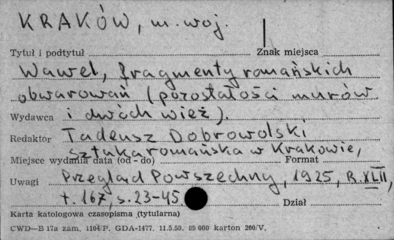 KRAKÓW, m. woj.
Tytuł i podtytuł Znak miejsca
Wawel, fragmenty romańskich
obwarowań (pozostałości murów
Wydawca i dwóch wież).
Redaktor Tadeusz Dobrowolski
Sztuka romańska w Krakowie,
Miejsce wydania data (od - do) Format
Uwagi Przegląd Powszechny, 1925, R. XLII,
t. 167, s. 23-45 Dział
Karta katologowa czasopisma (tytularna)
CWD—B 17a zam. 1104/P. GDA-1477. 11.5.50. 80 000 karton 200/V.